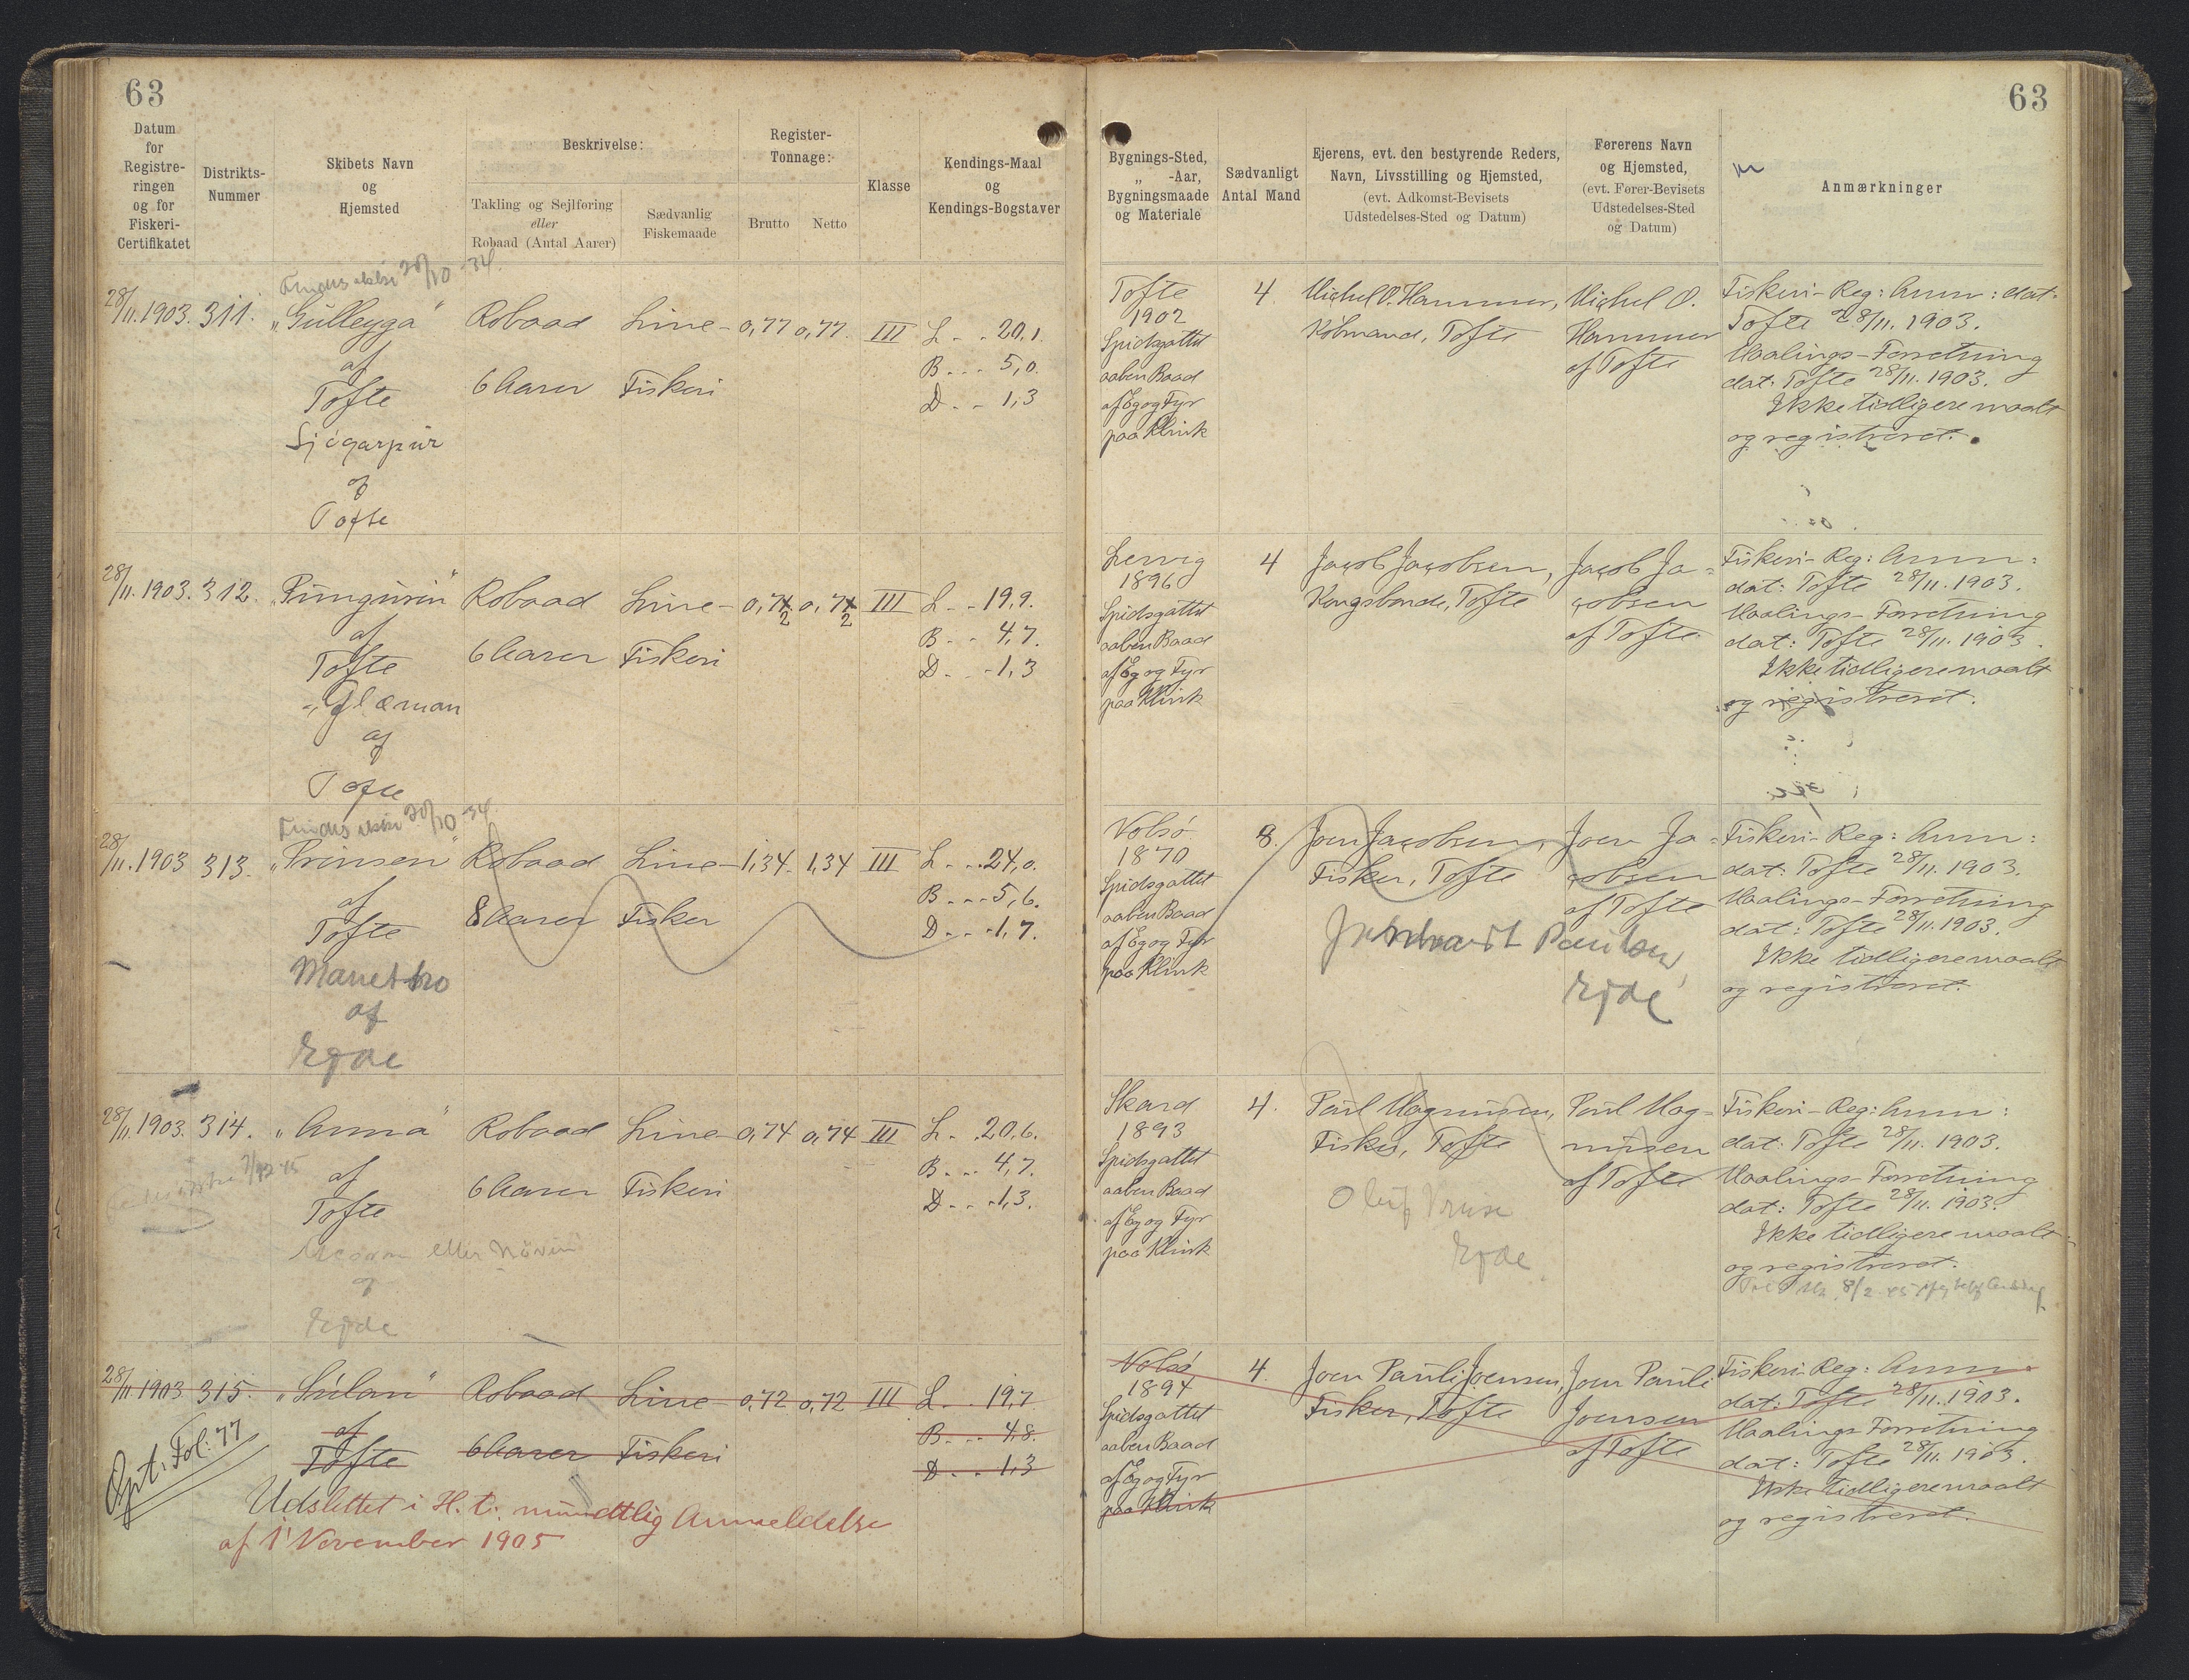 63
63
Datum
for
Registre-
ringen
og for
Fiskeri-
Certifikatet
Distrikts-
Nummer
Skibets Navn
og
Hjemsted
Beskrivelse:
Takling og Sejlføring
eller
Robaad (Antal Aarer)
Sædvanlig
Fiskemaade
Register-
Tonnage:
Brutto
Netto
Klasse
Kendings-Maal
og
Kendings-Bogstaver
Bygnings-Sted,
„ -Aar,
Bygningsmaade
og Materiale
Sædvanligt
Antal Mand
Ejerens, evt. den bestyrende Reders,
Navn, Livsstilling og Hjemsted,
(evt. Adkomst-Bevisets
Udstedelses-Sted og Datum)
Førerens Navn
og Hjemsted,
(evt. Fører-Bevisets
Udstedelses-Sted
og Datum)
Anmærkninger
Findes ikke 28/10-34.
28/11.1903. 311. „Gulleyga" Robaad Line- 0,77 0,77. III L. . 20,1.
af
Tofte
6 Aarer Fiskeri
B . . . 5,0.
D . . 1,3
af
Tofte
Tofte
1902
Spidsgattet
aaben Baad
af Eg og Fyr
paa Klink
4 Michel O. Hammer,
Købmand, Tofte
Michel O.
Hammer
af Tofte
Fiskeri-Reg: Anm: dat:
Tofte 28/11. 1903.
Maalings-Forretning
dat: Tofte 28/11. 1903.
Ikke tidligere maalt
og registreret.
28/11.1903. 312. Robaad Line- III L . . 19,9.
af
Tofte
6 Aarer Fiskeri
B . . 4,7.
D . . 1,3
„Glæman
af
Tofte
Lervig
1896
Spidsgattet
aaben Baad
af Eg og Fyr
paa Klink
4 Jacob Jacobsen,
Kongsbonde, Tofte
Jacob Ja=
cobsen
af Tofte.
Fiskeri-Reg: Anm:
dat: Tofte 28/11. 1903.
Maalings-Forretning
dat: Tofte 28/11. 1903.
Ikke tidligere maalt
og registreret.
Findes ikke 28/10-34
28/11.1903 313. „Prinsen" Robaad Line- 1,34. 1,34 III L . . 24,0.
af
Tofte
8 Aarer Fisker
B . . . 5,6.
D . . . 1,7.
af
Ejde
Nolsø
1870
Spidsgattet
aaben Baad
af Eg og Fyr
paa Klink
8. Joen Jacobsen,
Fisker, Tofte
Joen Ja=
cobsen
af Tofte
Poulsen,
Ejde
Fiskeri-Reg: Anm:
dat: Tofte 28/11. 1903.
Maalings-Forretning
dat: Tofte 28/11. 1903.
Ikke tidligere maalt
og registreret.
28/11.1903. 314. „Anna" Robaad Line- 0,74 0,74 III L . . 20,6.
af
Tofte
6 Aarer Fiskeri
B . . . 4,7.
D . . . 1,3.
eller
af
Ejde
Skard
1893
Spidsgattet
aaben Baad
af Eg og Fyr
paa Klink
4. Poul Magnusen,
Fisker, Tofte
Poul Mag=
nusen
af Tofte
Ejde
Fiskeri-Reg: Anm:
dat: Tofte 28/11. 1903.
Maalings-Forretning
dat: Tofte 28/11. 1903.
Ikke tidligere maalt
og registreret.
28/11.1903 315. „Súlan" Robaad Line- 0,72 0,72 III L . . 19,7.
af
Tofte
6 Aarer Fiskeri
B . . . 4,8.
D . . 1,3
Fol: 77
Udslettet i H. t. mundtlig Anmeldelse
af 1' November 1905
Nolsø
1894
Spidsgattet
aaben Baad
af Eg og Fyr
paa Klink
4. Joen Pauli Joensen,
Fisker, Tofte
Joen Pauli
Joensen
af Tofte
Fiskeri-Reg: Anm:
dat: Tofte 28/11. 1903.
Maalings-Forretning
dat: Tofte 28/11. 1903.
Ikke tidligere maalt
og registreret.